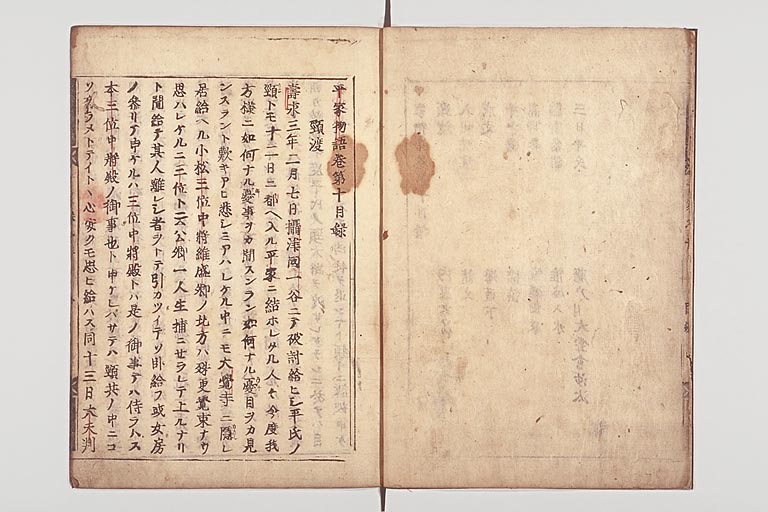 平家物語巻第十目録
頸渡
壽永三年二月七日攝津国一谷ニテ被討給ヒシ平氏ノ
頸トモ十二日ニ都ヘ入ル平家ニ結ホレタル人々今度我
方様ニ如何ナル憂事ヲカ聞スンラン如何ナル憂目ヲカ見
ンスラント歎キアヒ悲シミアハレケル中ニモ大覺寺ニ隠レ
居給ヘル小松三位中将維盛卿ノ北方ハ殊更覺束ナウ
思ハレケルニ三位ト云公卿一人生捕ニセラレテ上ルナリ
ト聞給テ其人離レシ者ヲトテ引カツイテソ臥給フ或女房
ノ参リテ申ケルハ三位中将殿トハ是ノ御事テハ侍ラハス
本三位中将殿ノ御事也ト申ケレハサテハ頸共ノ中ニコ
ソアラメトテイトヽ心安クモ思ヒ給ハス同十三日大夫判